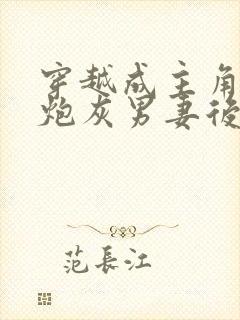 穿越成主角
炮灰男妻後
范長江